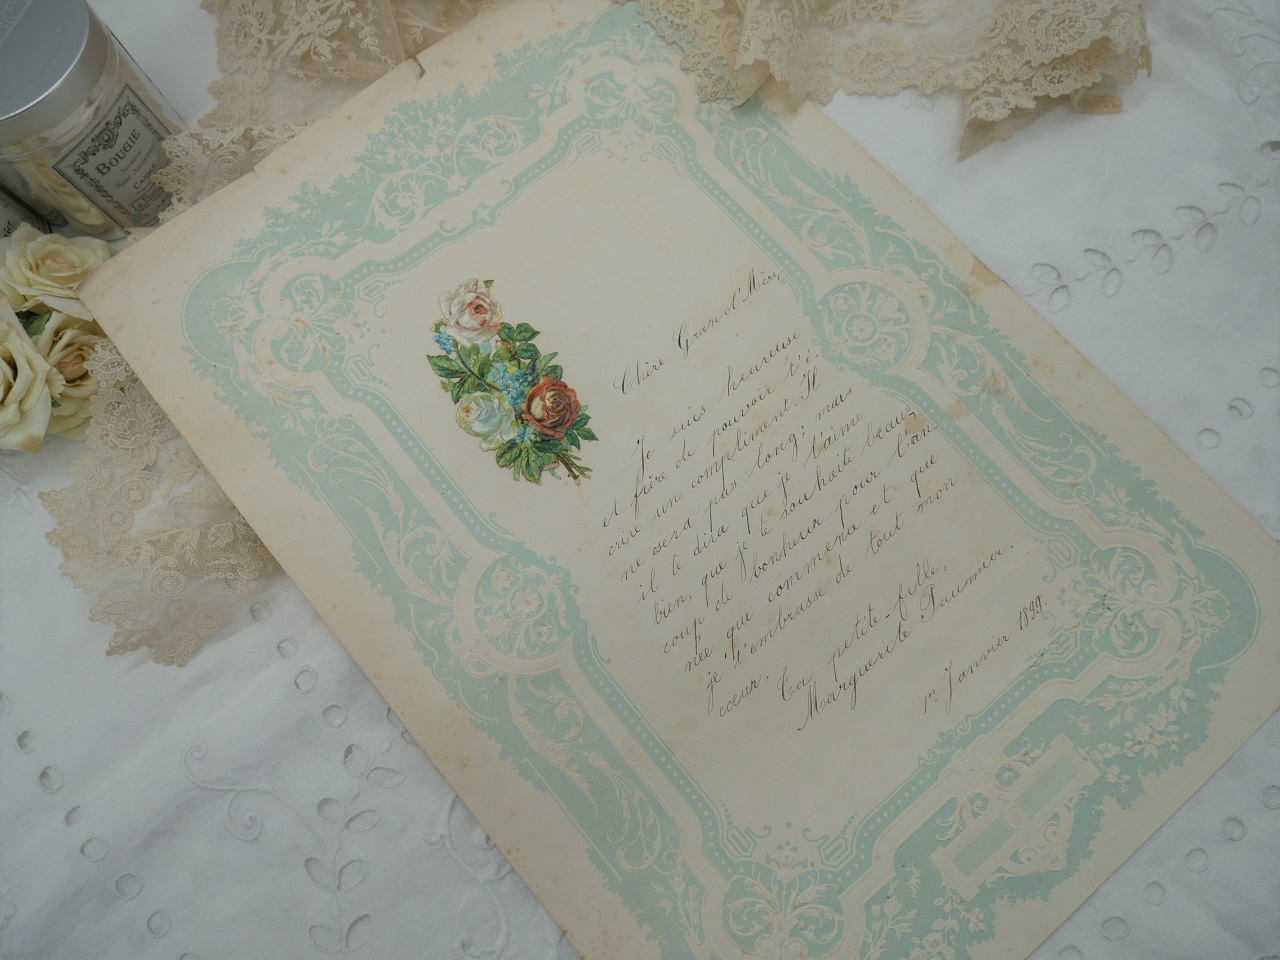 BOUGIE
Chère Grand'Mère,
Je suis heureuse
et fière de pouvoir t'é-
crire un compliment. Il
ne sera pas long; mais
il te dira que je t'aime
bien, que je te souhaite beau-
coup de bonheur pour l'an-
née qui commence et que
je t'embrasse de tout mon
cœur.
Ta petite-fille,
Marguerite Paumier.
1er Janvier 1899.